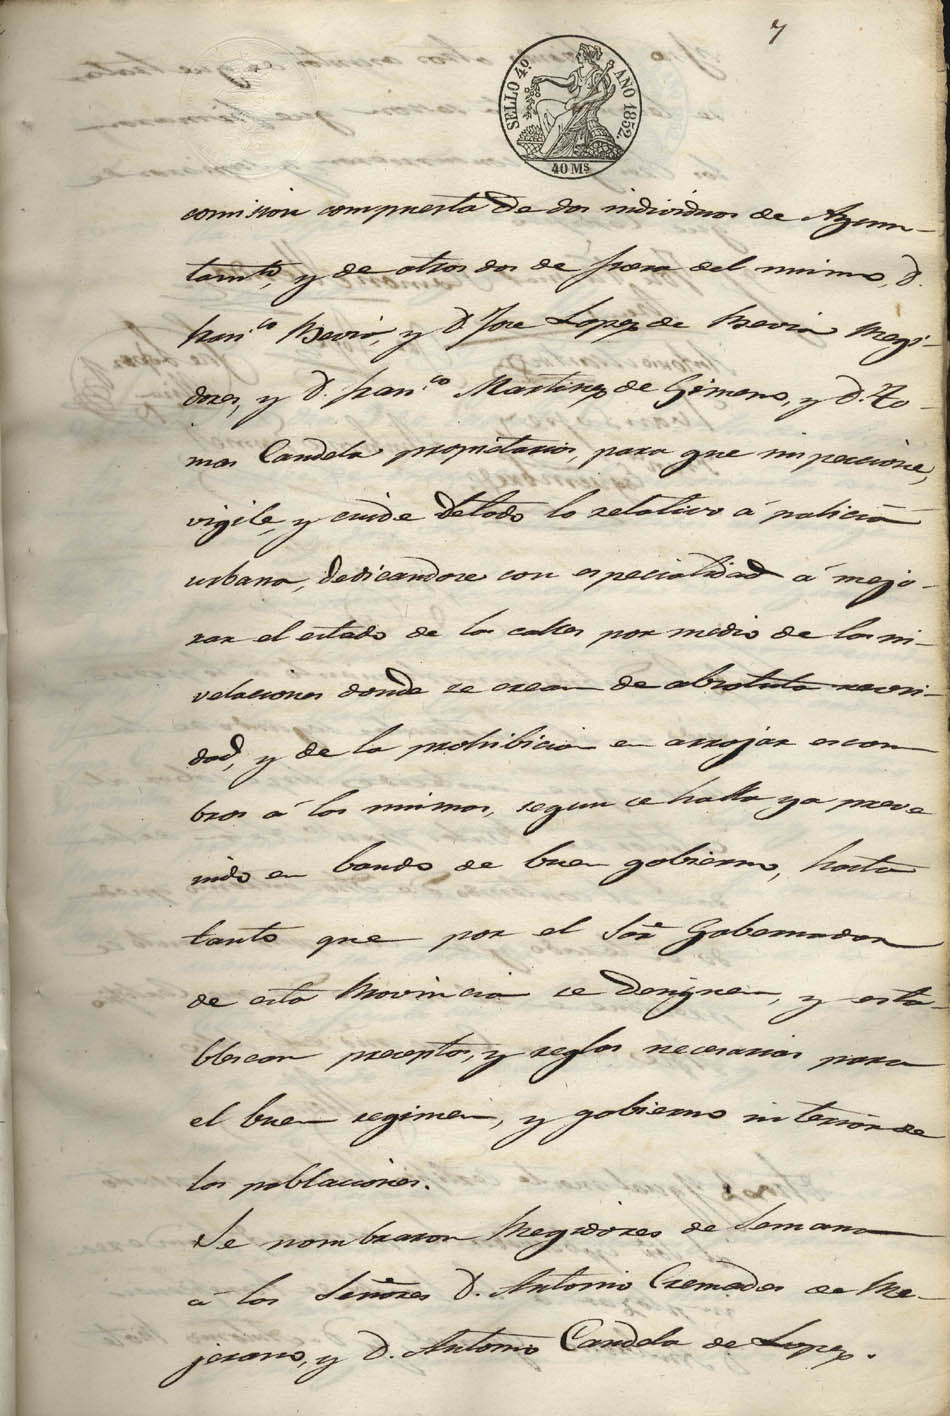 7
SELLO 4º. AÑO 1852.
40 Ms
comision compuesta de dos individuos de Ayun-
tamto, y de otros dos de fuera del mismo, D.
Franco Hevia, y D. Jose Lopez de Hevia Regi-
dores, y D. Franco Martinez de Gimeno, y D. To-
mas Candela propietarios, para que inspeccione,
vigile, y cuide detodo lo relativo á policia
urbana, dedicandose con especialidad á mejo-
rar el estado de las calles por medio de las ni-
velaciones donde se crean de absoluta necesi-
dad, y de la prohibicion en arrojar escom
bros á las mismas, segun se halla ya preve
nido en bando de buen gobierno, hasta
tanto que por el Sor. Gobernador
de esta Provincia se designen, y esta-
blescan preceptos, y reglas necesarias para
el buen regimen, y gobierno interior de
las poblaciones.
Se nombraron Regidores de Semana
á los Señores D. Antonio Cremades de Me-
jerano, y D. Antonio Candela de Lopez.